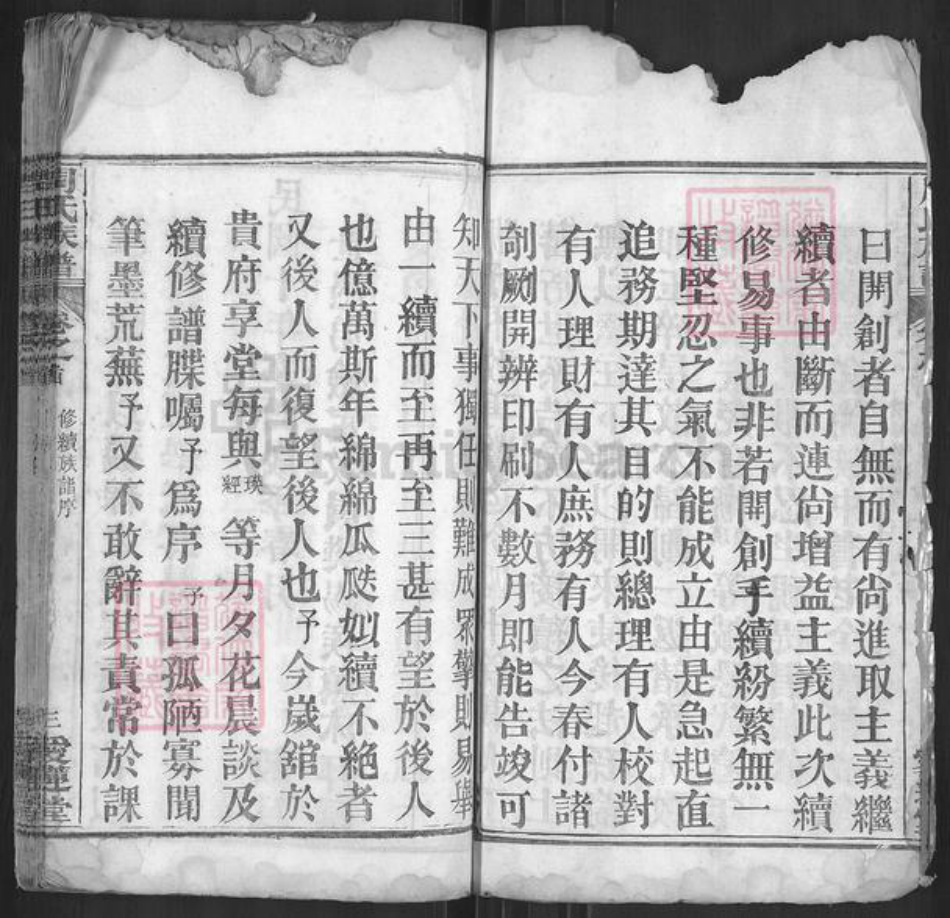 曰開創者自無而有尙進取主義繼
續者由斷而連尙增益主義此次續
修易事也非若開創手續紛繁無一
種堅忍之氣不能成立由是急起直
追務期達其目的則總理有人校對
有人理財有人庶務有人今春付諸
剞劂開辨印刷不數月即能告竣可
知天下事獨任則難成眾擎則易舉
由一續而至再至三甚有望於後人
也億萬斯年綿綿瓜瓞如續不絕者
又後人而復望後人也予今歲舘於
貴府享堂每與瑛經等月夕花晨談及
續修譜牒囑予爲序予曰孤陋寡聞
筆墨荒蕪予又不敢辭其責常於課
周氏族譜
卷之首
修續族譜序
三
愛蓮堂